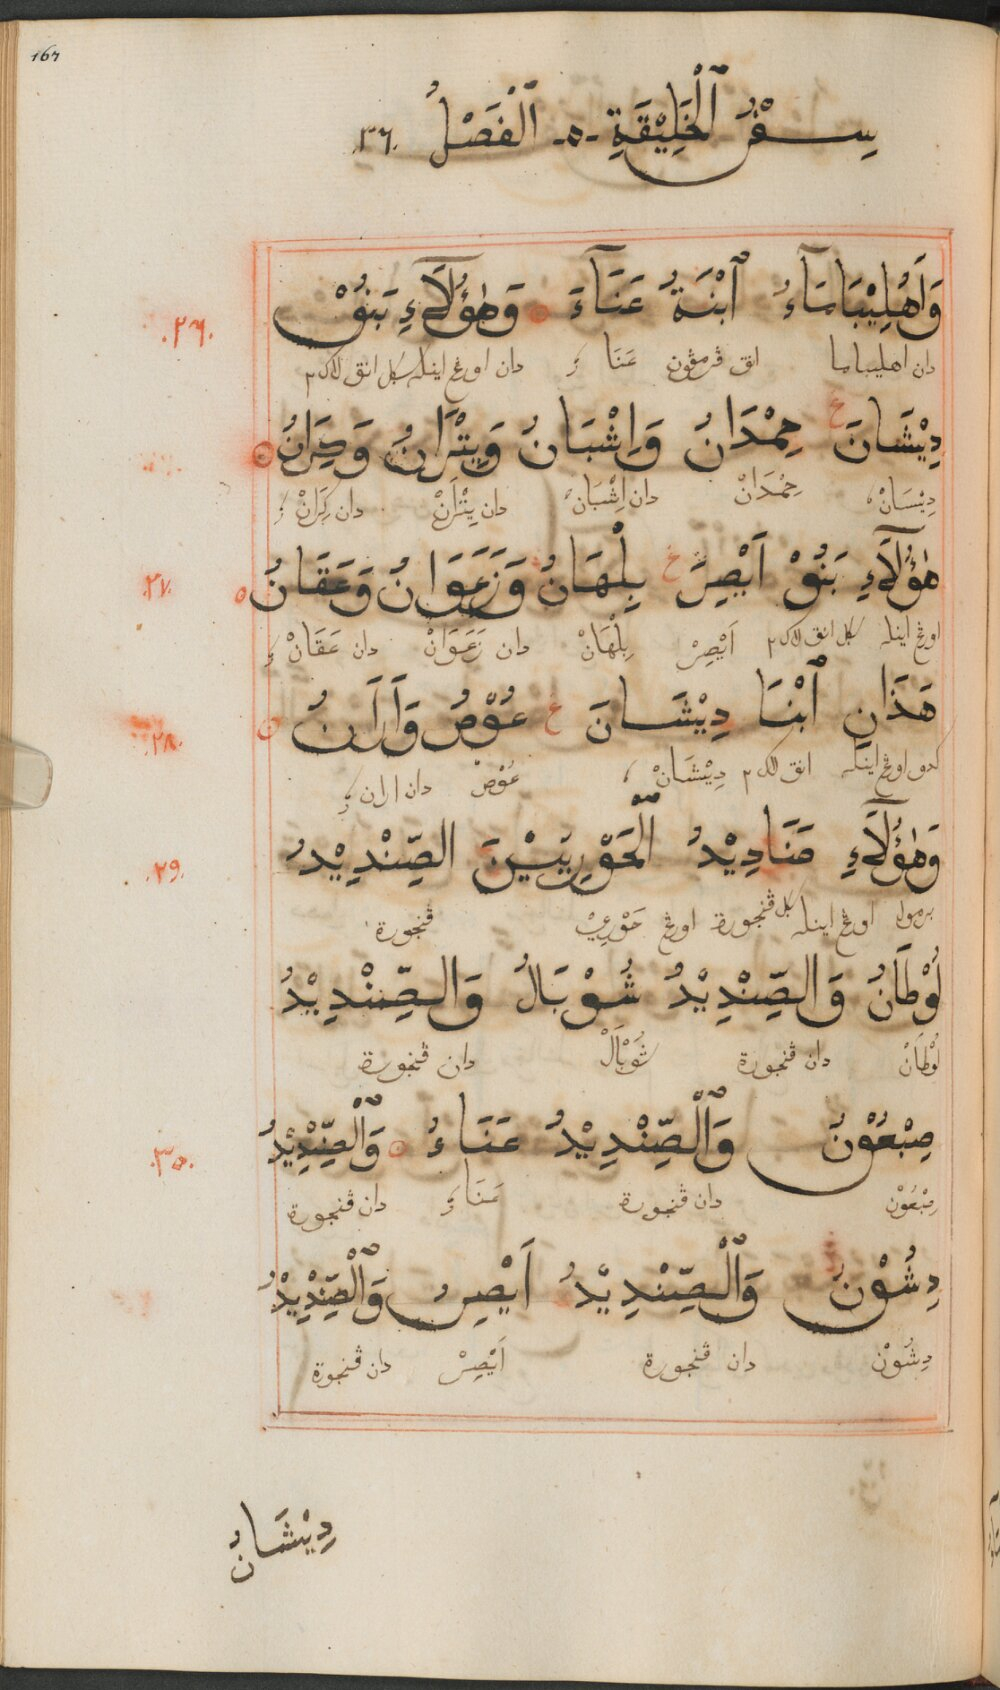 167
سِفْرُ ٱلْخَلِيْقَةِ -ه- ٱلْفَصْلُ .٣٦.
وَاَهْلِيْبَامَآءُ ٱبْنَةُ عَنَآءَ وَهٰؤُلَآءِ بَنُوْ
.٢٦.
دان اهليباما انق ڤرمڤون عَنَا دان اورڠ اينله سكل انق لاك٢
دِيْشَانَ ع حِمْدَانُ وَاِشْبَانُ وَيِتْرَانُ وَكِرَانُ
دِيْسَانْ حِمْدَانْ دان اِشْبَانْ دان يِتْرَانْ دان كِرَانْ
هٰؤُلَآءِ بَنُوْ اَيْصِرَ ع بِلْهَانُ وَزَعَوَانُ وَعَقَانُ
.٢٧.
اورڠ اينله سكل انق لاك٢ اَيْصِرْ بِلْهَانْ دان زَعَوَانْ دان عَقَانْ
هَذَانِ ٱبْنَا دِيْشَانَ ع عُوْصُ وَاَرَانُ
.٢٨.
كدو اورڠ اينله انق لاك٢ دِيْشَانْ عُوْصْ دان اران
وَهٰؤُلَآءِ صَنَادِيْدُ ٱلْحَوْرِيِّيْنَ الصِّنْدِيْدُ
.٢٩.
برمول اورڠ اينله سكل ڤنجورة اورڠ حَوْرِيْ ڤنجورة
لُوْطَانُ وَالصِّنْدِيْدُ شُوْبَالُ وَالصِّنْدِيْدُ
لُوْطَانْ دان ڤنجورة شُوْبَالْ دان ڤنجورة
صِبْعُوْنُ وَٱلْصِّنْدِيْدُ عَنَآءُ وَٱلْصِّنْدِيْدُ
.٣٠.
صِبْعُوْنْ دان ڤنجورة عَنَا دان ڤنجورة
دِشُوْنُ وَٱلْصِّنْدِيْدُ اَيْصِرُ وَٱلْصِّنْدِيْدُ
دِشُوْنْ دان ڤنجورة اَيْصِرْ دان ڤنجورة
دِيْشَانُ